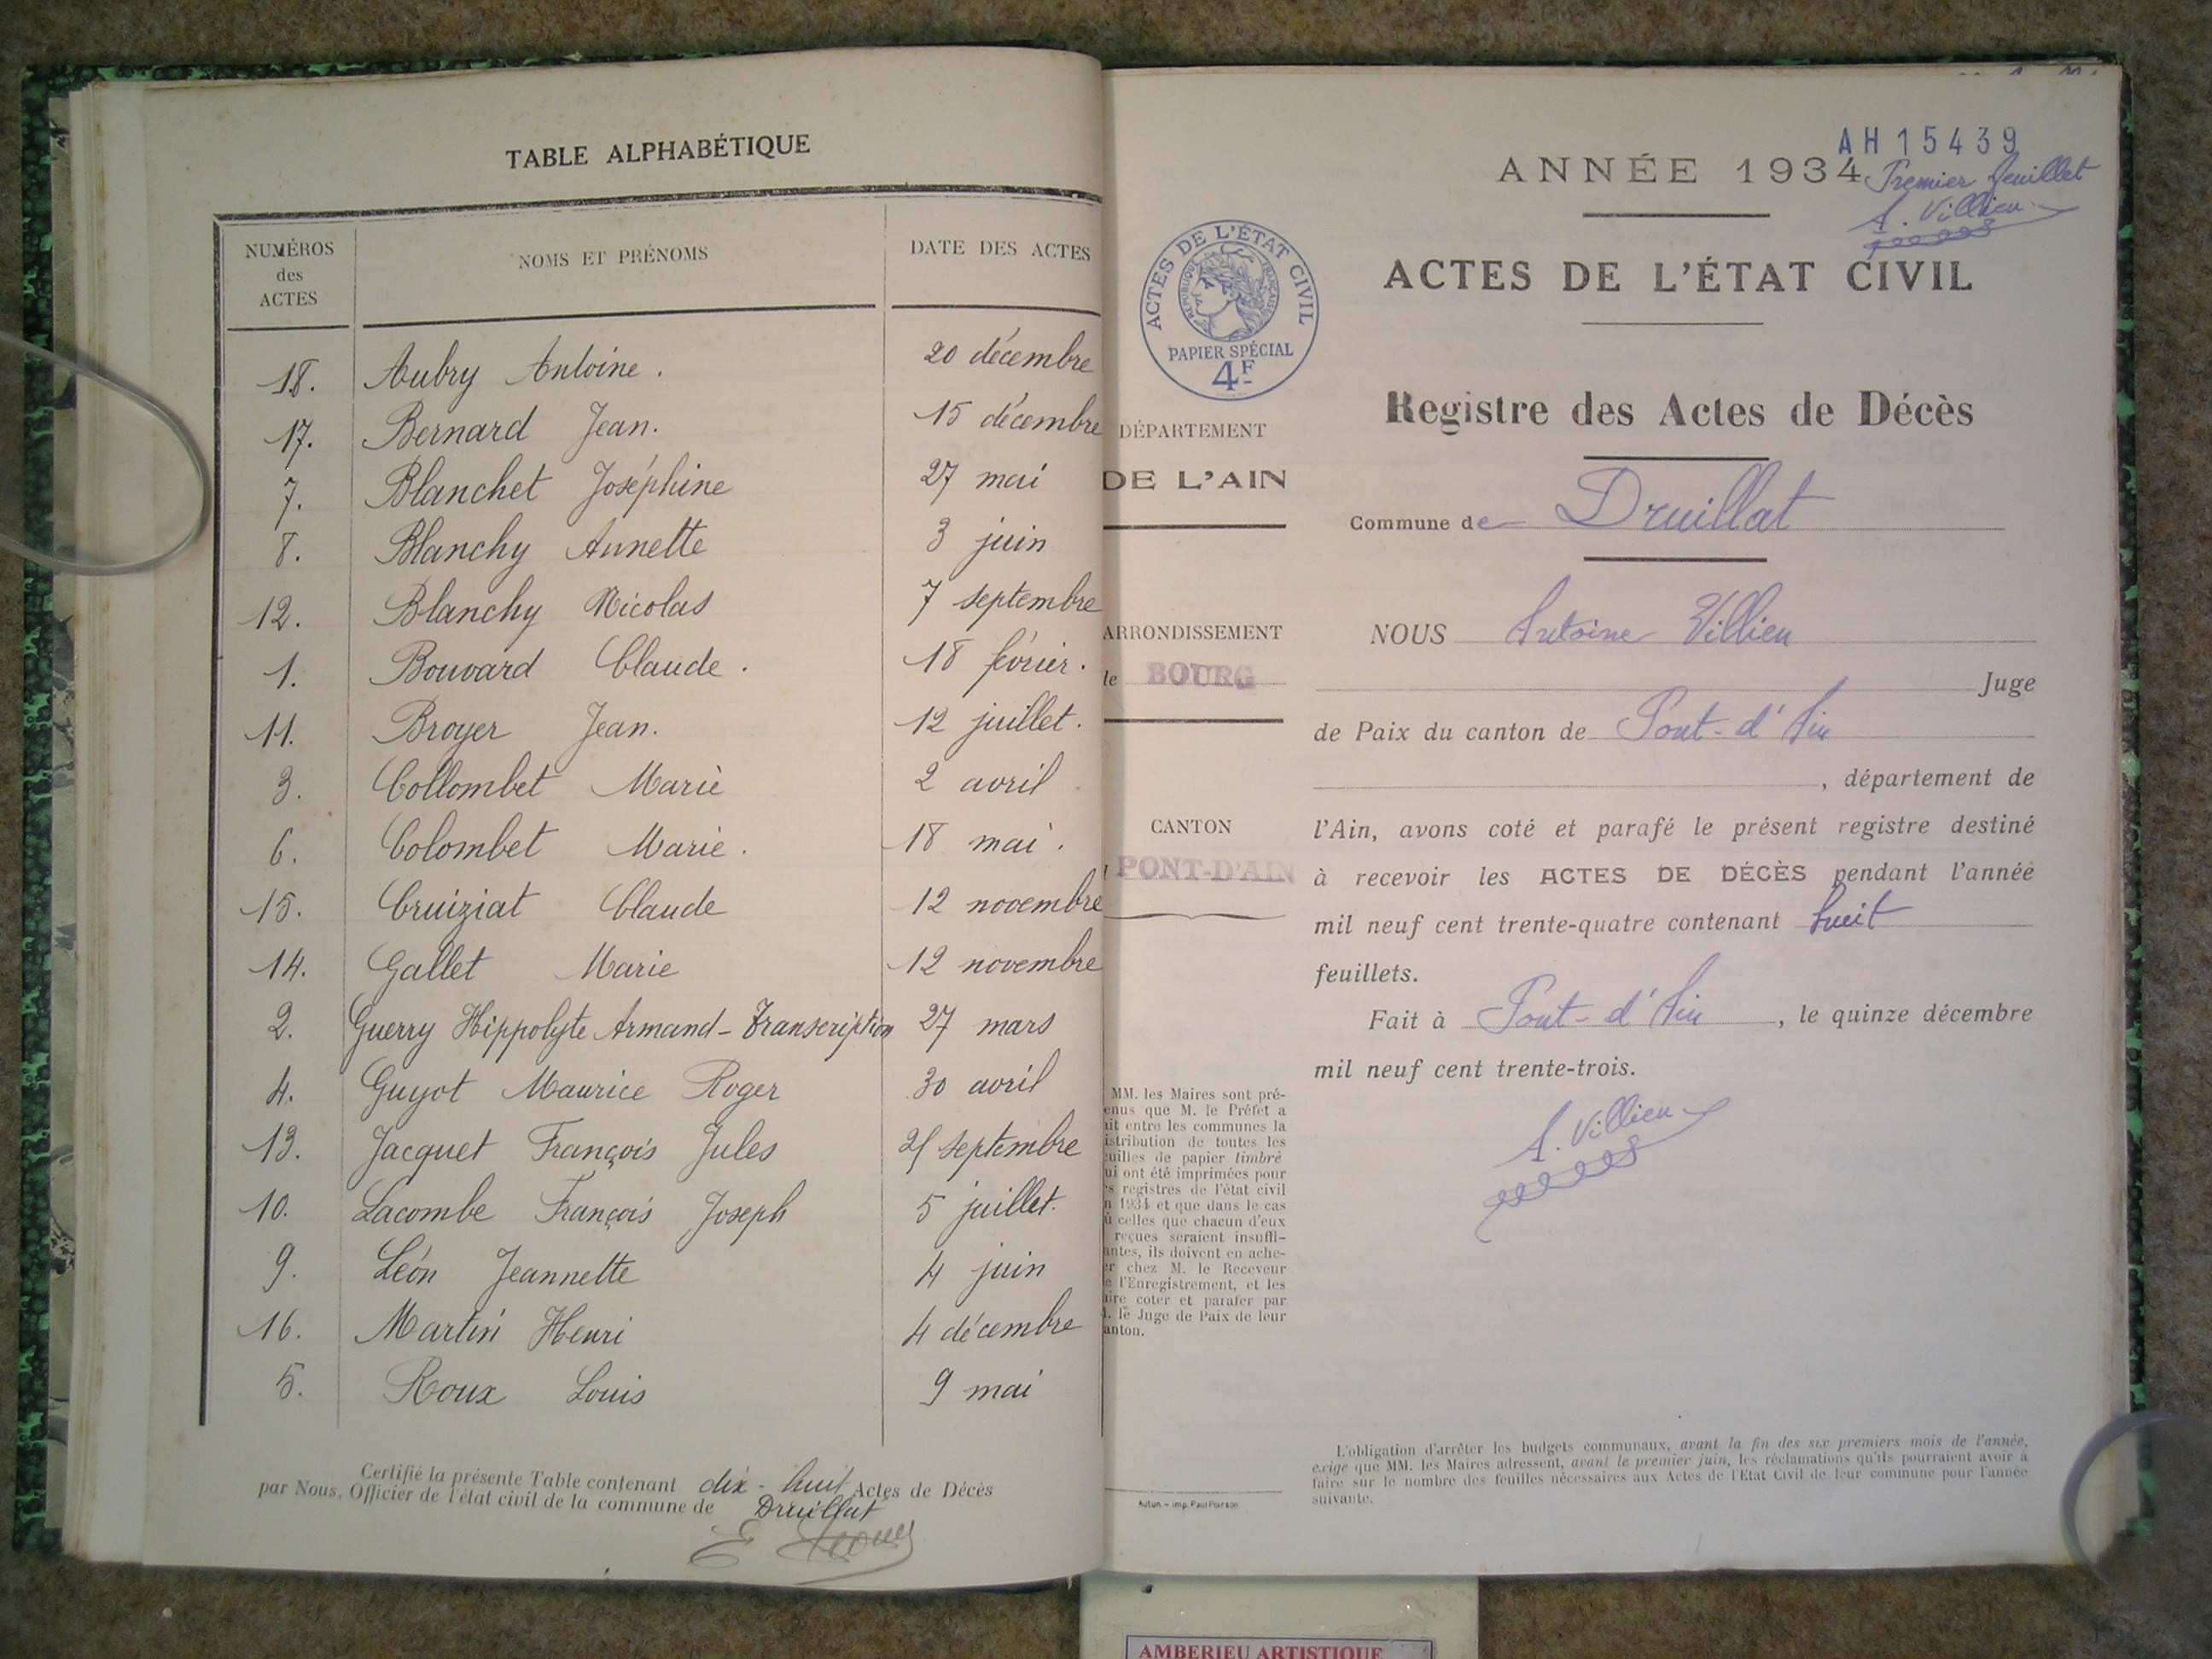 TABLE ALPHABÉTIQUE
NUMÉROS des ACTES NOMS ET PRÉNOMS DATE DES ACTES
18. Aubry Antoine. 20 décembre
17. Bernard Jean. 15 décembre
7. Blanchet Joséphine 27 mai
8. Blanchy Annette 3 juin
12. Blanchy Nicolas 7 septembre
1. Bouvard Claude. 18 février.
11. Broyer Jean. 12 juillet.
3. Collombet Marie 2 avril
6. Colombet Marie. 18 mai.
15. Cruiziat Claude 12 novembre
14. Gallet Marie 12 novembre
2. Guerry Hippolyte Armand - Transcription 27 mars
4. Guyot Maurice Roger 30 avril
13. Jacquet François Jules septembre
10. Lacombe François Joseph 5 juillet.
9. Léon Jeannette 4 juin
16. Martin Henri 4 décembre
5. Roux Louis 9 mai
Certifié la présente Table contenant dix-huit Actes de Décès
par Nous, Officier de l'état civil de la commune de Druillat
AH 15439
ANNÉE 1934
Premier feuillet
A. Villien
ACTES DE L'ÉTAT CIVIL
RÉPUBLIQUE FRANÇAISE
PAPIER SPÉCIAL
4F
ACTES DE L'ÉTAT CIVIL
Registre des Actes de Décès
DÉPARTEMENT
DE L'AIN
Commune de Druillat
ARRONDISSEMENT
de BOURG
NOUS Antoine Villien
Juge
de Paix du canton de Pont-d'Ain
, département de
CANTON
PONT-D'AIN
l'Ain, avons coté et parafé le présent registre destiné
à recevoir les ACTES DE DÉCÈS pendant l'année
mil neuf cent trente-quatre contenant huit
feuillets.
Fait à Pont-d'Ain, le quinze décembre
mil neuf cent trente-trois.
A. Villien
MM. les Maires sont pré-
enus que M. le Préfet a
it entre les communes la
istribution de toutes les
uilles de papier timbré
ui ont été imprimées pour
s registres de l'état civil
n 1934 et que dans le cas
ù celles que chacun d'eux
reçues seraient insuffi-
antes, ils doivent en ache-
er chez M. le Receveur
e l'Enregistrement, et les
aire coter et parafer par
. le Juge de Paix de leur
anton.
Autun. - imp. Paul Poirson
L'obligation d'arrêter les budgets communaux, avant la fin des six premiers mois de l'année,
exige que MM. les Maires adressent, avant le premier juin, les réclamations qu'ils pourraient avoir à
faire sur le nombre des feuilles nécessaires aux Actes de l'Etat Civil de leur commune pour l'année
suivante.
AMBERIEU ARTISTIQUE